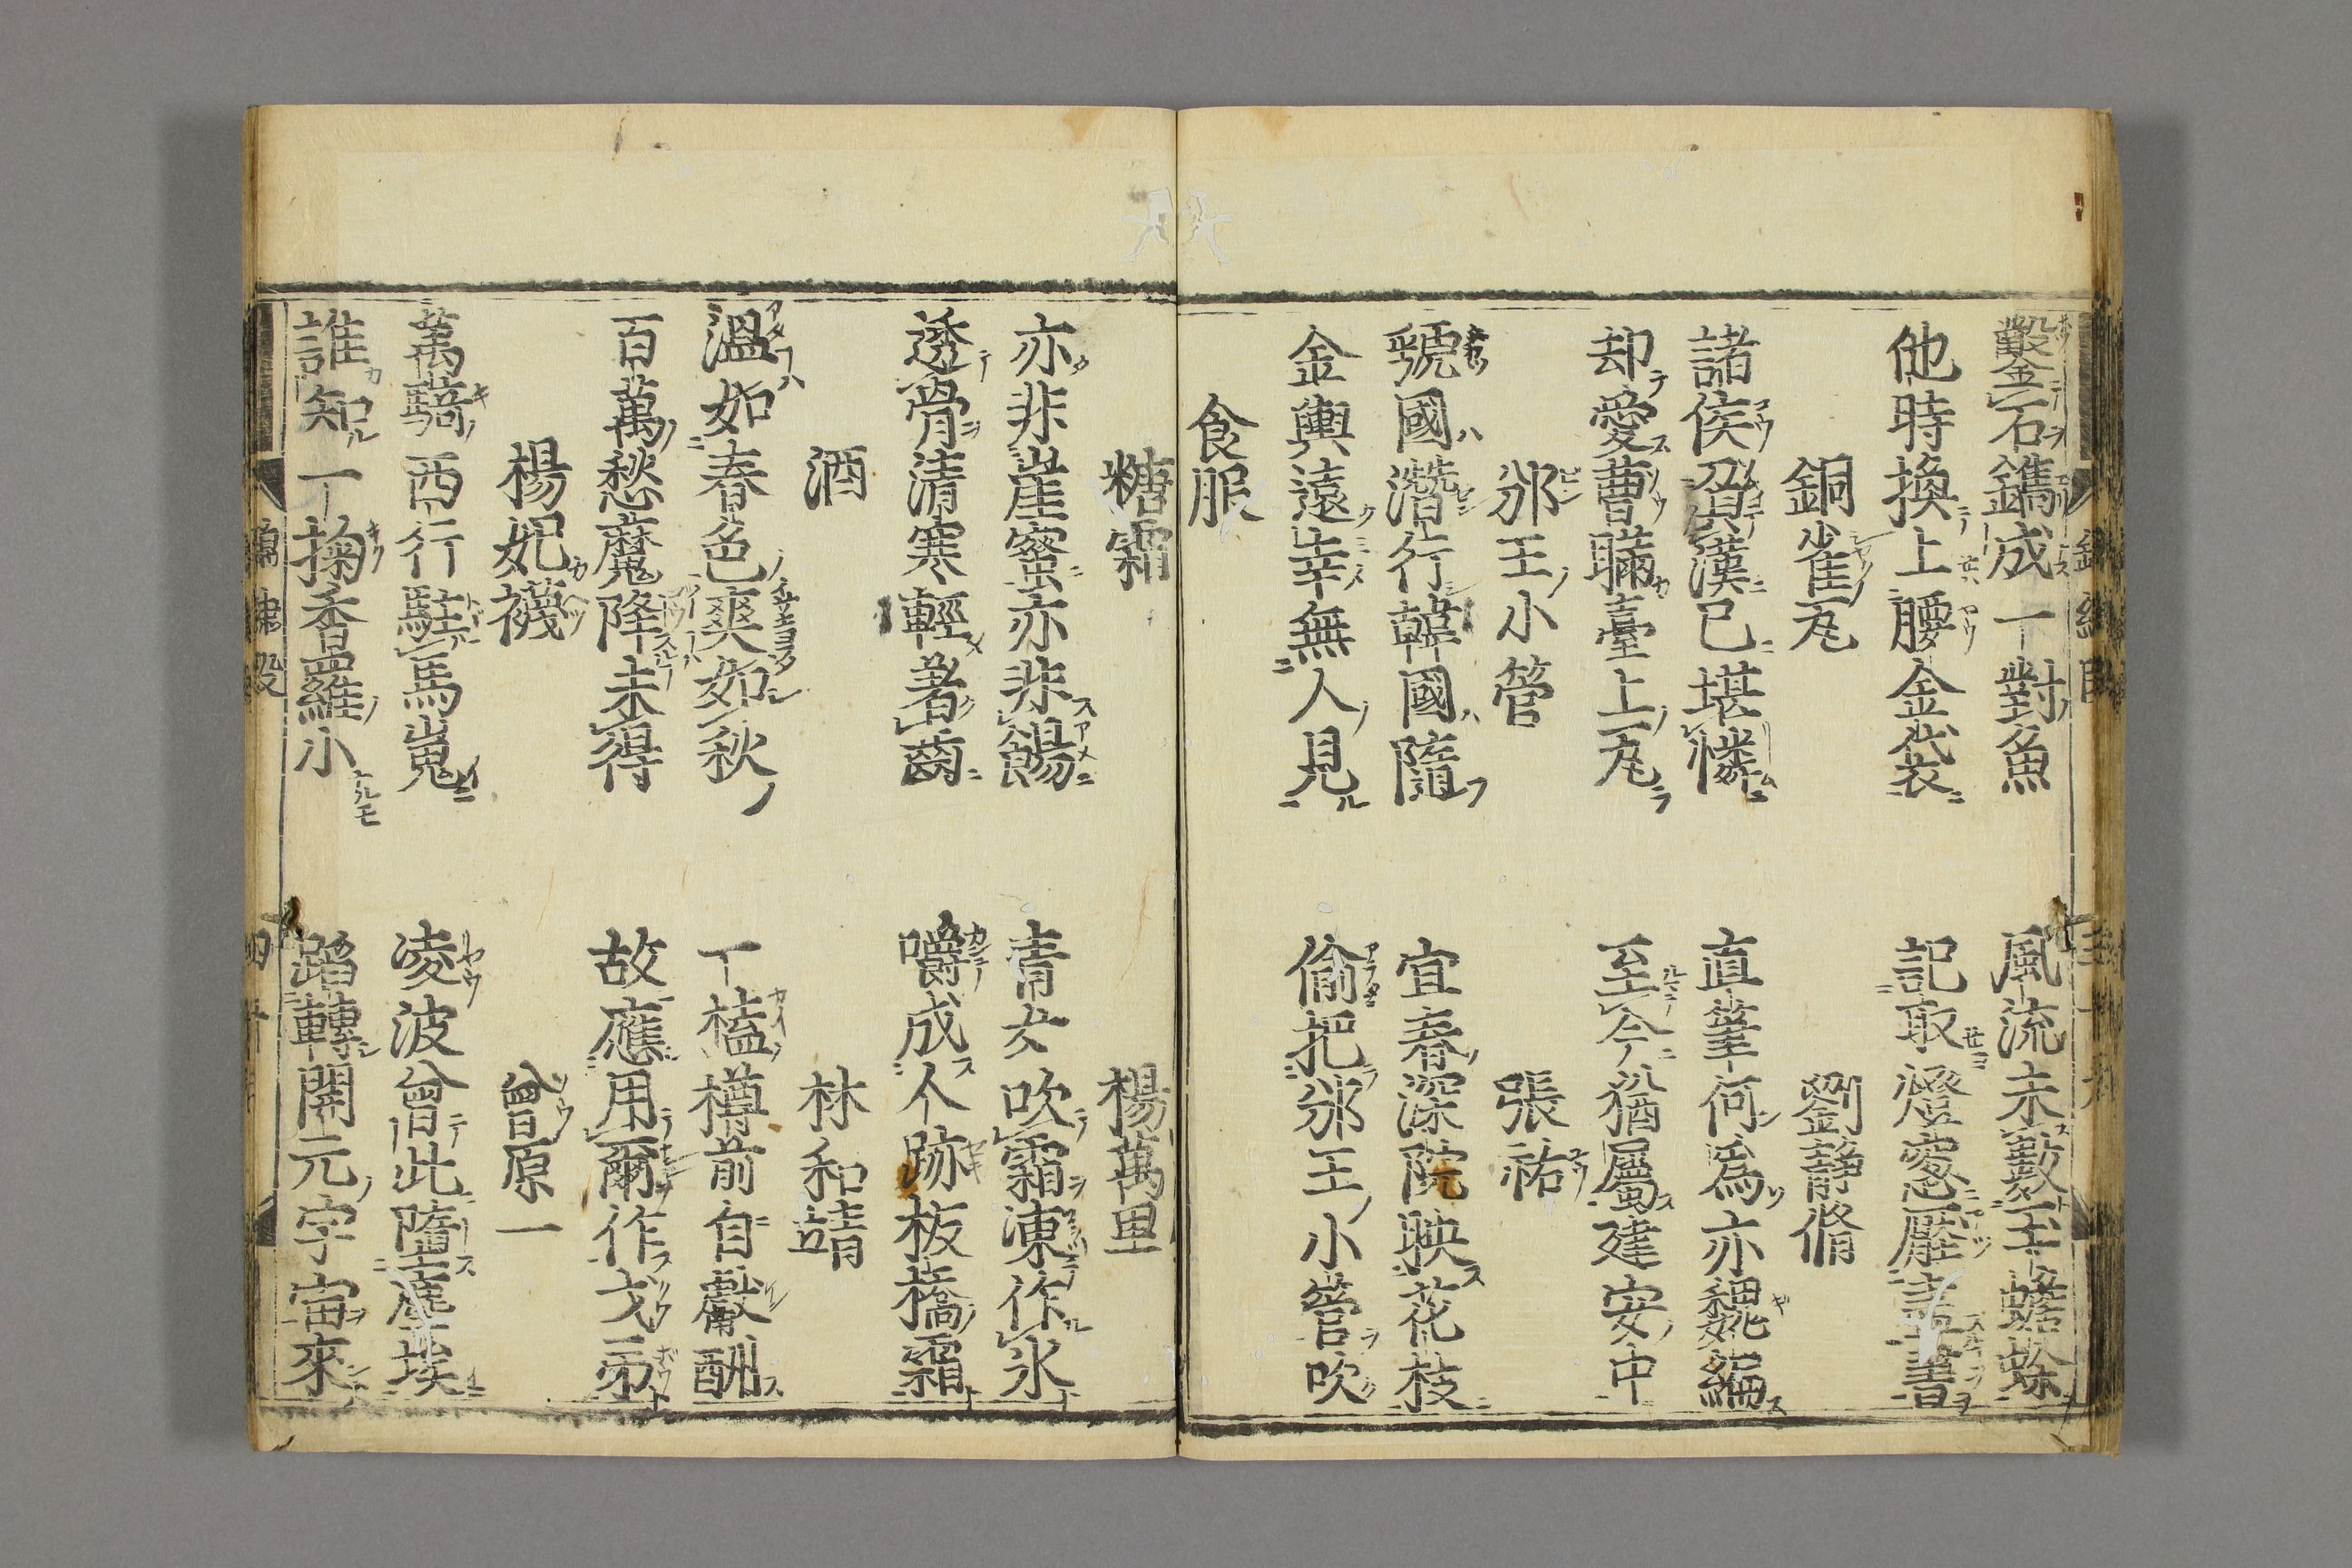 鑿石鐫成一對魚　風流未數玉蟾蜍
他時換上腰金袋　記取燈窓壓書
銅雀瓦　劉静脩
諸侯負漢已堪憐　直筆何爲亦魏編
却愛曹瞞臺上瓦　至今猶屬建安中
邠王小管　張祐
虢國潛行韓國隨　宜春深院映花枝
金輿遠幸無人見　偷把邠王小管吹
食服
糖霜　楊萬里
亦非崖蜜亦非餳　青女吹霜凍作氷
透骨清寒輕著齒　嚼成人跡板橋霜
酒　林和靖
溫如春色爽如秋　一榼樽前自獻酬
百萬愁魔降未得　故應用爾作戈矛
楊妃襪　曾原一
萬騎西行駐馬嵬　凌波曾此墮塵埃
誰知一掬香羅小　踏轉開元宇宙來